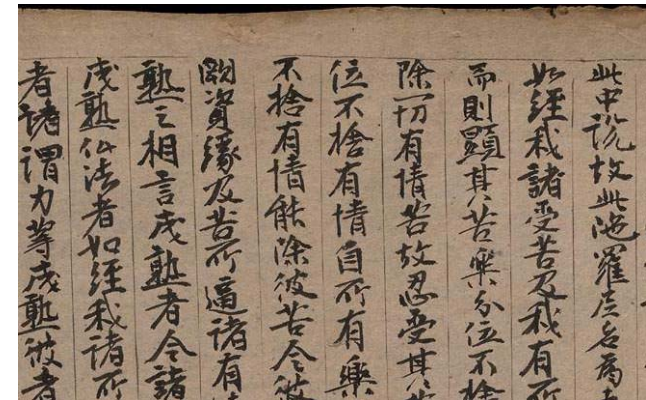 此中說故此陁羅尼名為
如經我諸受苦及我有所
而則顯其苦樂分位不捨
除一切有情苦故忍受其苦
位不捨有情自所有樂
不捨有情能除彼苦令彼
資緣及苦所逼諸有情
熟之相言成熟者令諸
成熟仏法者如經我諸所
者諸謂力等成熟彼者